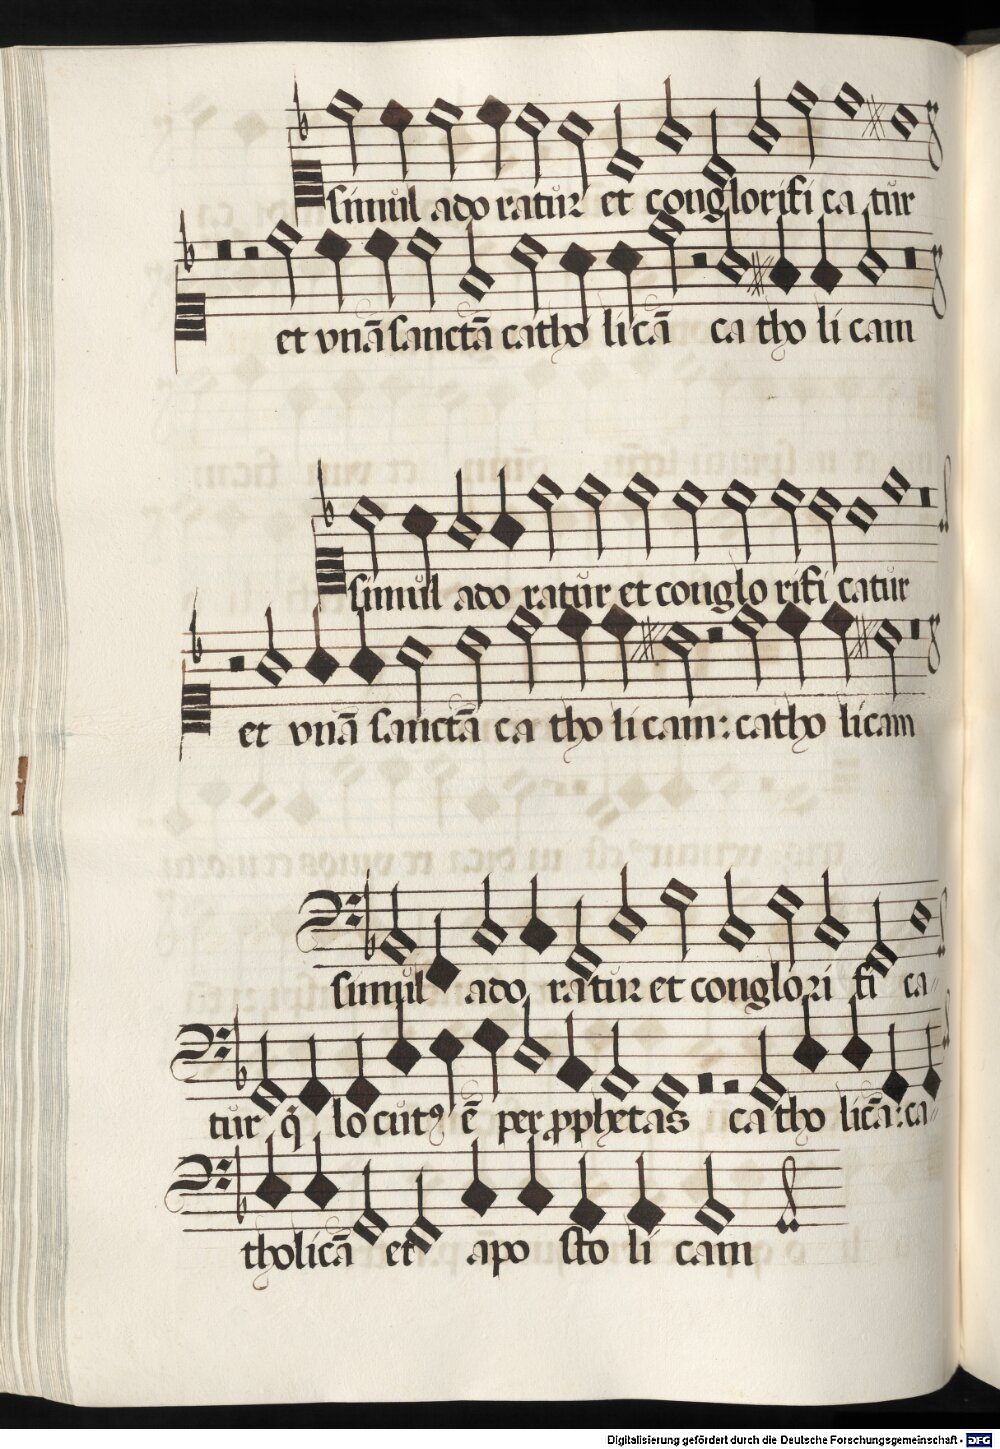 simul ado ratur et conglorifi ca tur
et vnā sanctā catho licā ca tho li cam
simul ado ratur et conglo rifi catur
et vnā sanctā ca tho li cam: catho licam
simul ado ratur et conglori fi ca-
tur q̇ lo cutꝰ ē per ꝓphetas ca tho licā: ca-
tholicā et apo sto li cam
Digitalisierung gefördert durch die Deutsche Forschungsgemeinschaft - DFG